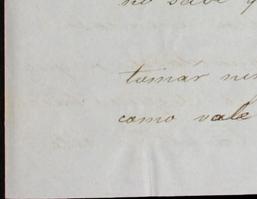 no sabe
tomár
como vale